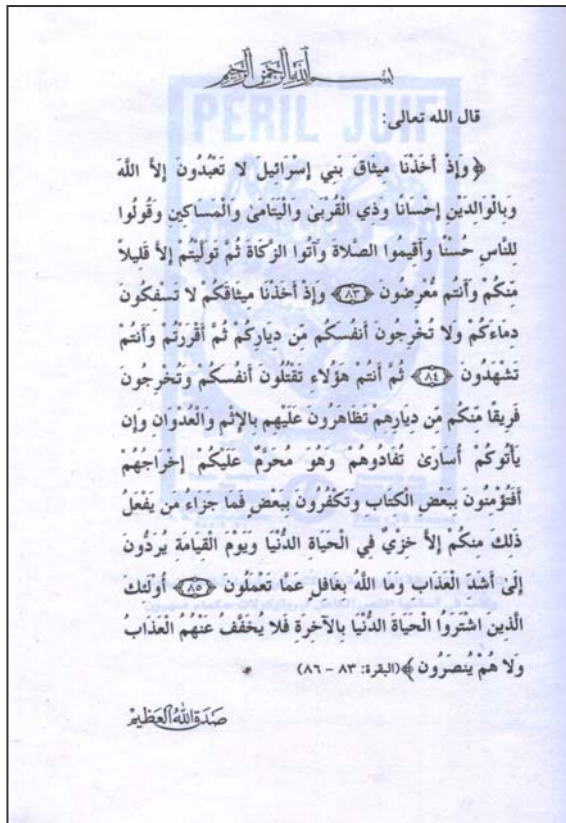 بسم الله الرحمن الرحيم
PERIL JUIF
قال الله تعالى:
﴿ وَإِذْ أَخَذْنَا مِيثَاقَ بَنِي إِسْرَائِيلَ لا تَعْبُدُونَ إِلاَّ اللَّهَ
وَبِالْوَالِدَيْنِ إِحْسَانًا وَذِي الْقُرْبَىٰ وَالْيَتَامَىٰ وَالْمَسَاكِينِ وَقُولُوا
لِلنَّاسِ حُسْنًا وَأَقِيمُوا الصَّلاةَ وَآتُوا الزَّكَاةَ ثُمَّ تَوَلَّيْتُمْ إِلاَّ قَلِيلاً
مِّنكُمْ وَأَنتُم مُّعْرِضُونَ ﴿٨٣﴾ وَإِذْ أَخَذْنَا مِيثَاقَكُمْ لا تَسْفِكُونَ
دِمَاءَكُمْ وَلا تُخْرِجُونَ أَنفُسَكُم مِّن دِيَارِكُمْ ثُمَّ أَقْرَرْتُمْ وَأَنتُمْ
تَشْهَدُونَ ﴿٨٤﴾ ثُمَّ أَنتُمْ هَؤُلاءِ تَقْتُلُونَ أَنفُسَكُمْ وَتُخْرِجُونَ
فَرِيقًا مِّنكُم مِّن دِيَارِهِمْ تَظَاهَرُونَ عَلَيْهِم بِالإِثْمِ وَالْعُدْوَانِ وَإِن
يَأْتُوكُمْ أُسَارَىٰ تُفَادُوهُمْ وَهُوَ مُحَرَّمٌ عَلَيْكُمْ إِخْرَاجُهُمْ
أَفَتُؤْمِنُونَ بِبَعْضِ الْكِتَابِ وَتَكْفُرُونَ بِبَعْضٍ فَمَا جَزَاءُ مَن يَفْعَلُ
ذَلِكَ مِنكُمْ إِلاَّ خِزْيٌ فِي الْحَيَاةِ الدُّنْيَا وَيَوْمَ الْقِيَامَةِ يُرَدُّونَ
إِلَىٰ أَشَدِّ الْعَذَابِ وَمَا اللَّهُ بِغَافِلٍ عَمَّا تَعْمَلُونَ ﴿٨٥﴾ أُوْلَئِكَ
الَّذِينَ اشْتَرَوُا الْحَيَاةَ الدُّنْيَا بِالآخِرَةِ فَلا يُخَفَّفُ عَنْهُمُ الْعَذَابُ
وَلا هُمْ يُنصَرُونَ ﴾ (البقرة: ٨٣ – ٨٦)
صدق الله العظيم